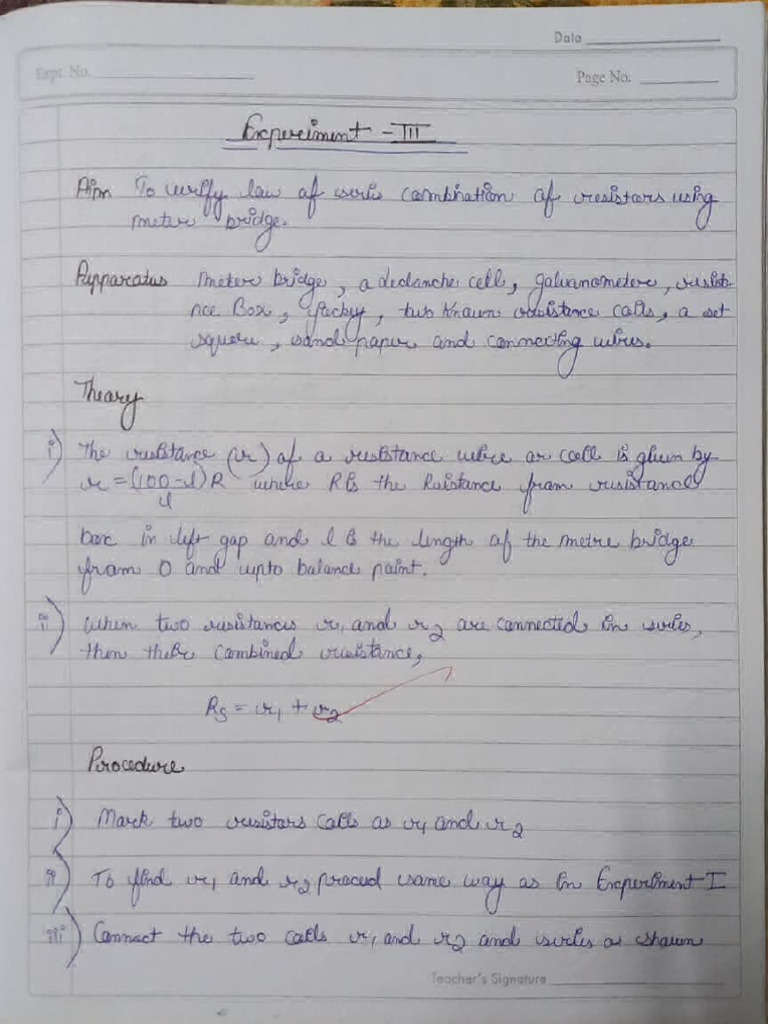 Date
Expt. No.
Page No.
Experiment - III
Aim To verify law of series combination of resistors using
meter bridge.
Apparatus meter bridge, a leclanche cell, galvanometer, resista-
nce Box, jockey, two known resistance coils, a set
square, sand paper and connecting wires.
Theory
i) The resistance (r) of a resistance wire or coil is given by
r = (100-l)R where R is the Resistance from resistance
l
box in left gap and l is the length of the metre bridge
from 0 and upto balance point.
ii) When two resistances r1 and r2 are connected in series,
then their combined resistance,
Rs = r1 + r2
Procedure
i) Mark two resistors coils as r1 and r2
ii) To find r1 and r2 proceed same way as in Experiment I
iii) Connect the two coils r1 and r2 and series as shown
Teacher's Signature